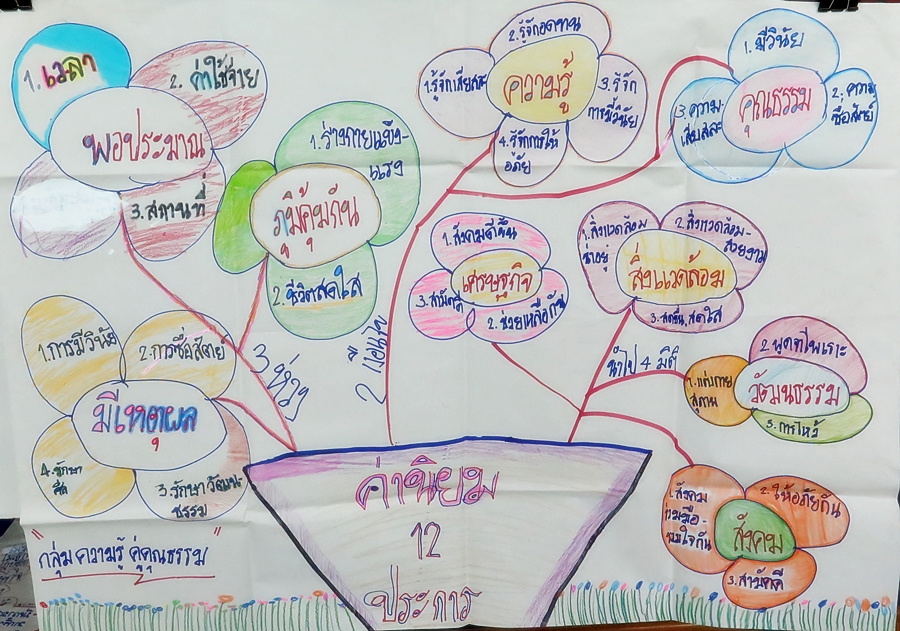 1. เวลา
2. ค่าใช้จ่าย
พอประมาณ
3. สถานที่
1. ร่างกายแข็ง-
แรง
ภูมิคุ้มกัน
2. ชีวิตสดใส
1. การมีวินัย
2. การซื่อสัตย์
มีเหตุผล
4. รักษา
ศีล
3. รักษาวัฒน-
ธรรม
3 ห่วง
2 เงื่อนไข
1. รู้จักเสียสละ
2. รู้จักอดทน
ความรู้
3. รู้จัก
การมีวินัย
4. รู้จักการให้
อภัย
1. มีวินัย
2. ความ
ซื่อสัตย์
คุณธรรม
3. ความ
เสียสละ
1. สังคมดีขึ้น
เศรษฐกิจ
3. สามัคคี
2. ช่วยเหลือกัน
1. สิ่งแวดล้อม
น่าอยู่
2. สิ่งแวดล้อม-
สวยงาม
สิ่งแวดล้อม
3. สดชื่น, สดใส
นำไป 4 มิติ
1. แต่งกาย
สุภาพ
2. พูดจาไพเราะ
วัฒนธรรม
3. การไหว้
1. สังคม
ร่วมมือ-
ร่วมใจกัน
2. ให้อภัยกัน
สังคม
3. สามัคคี
ค่านิยม
12
ประการ
"กลุ่ม ความรู้ คู่คุณธรรม"